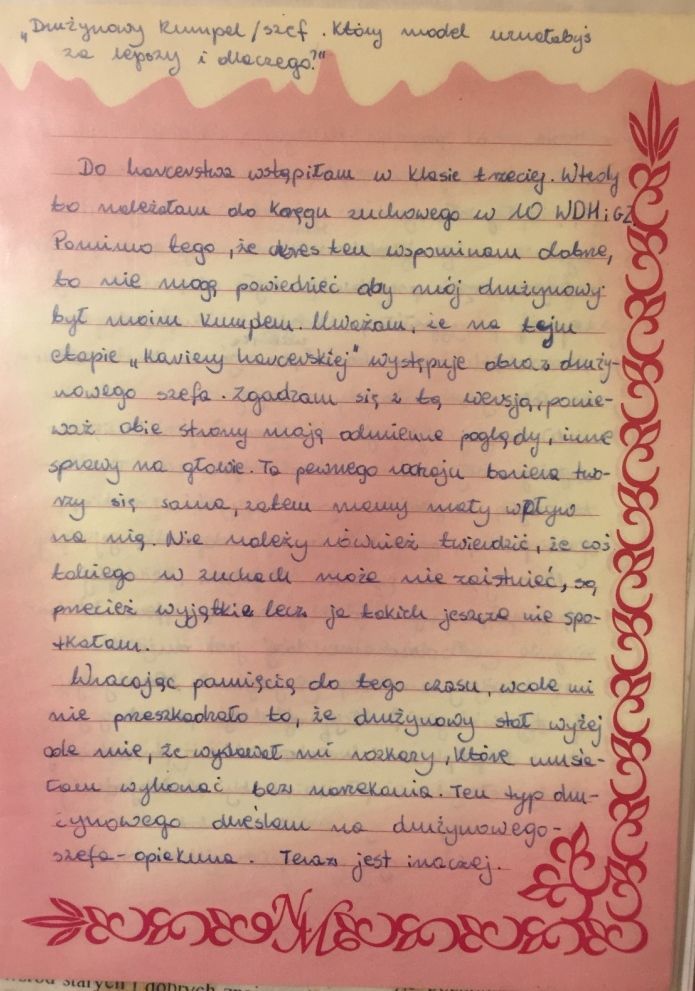 „Drużynowy kumpel/szef. Który model uznałabyś
za lepszy i dlaczego?"
Do harcerstwa wstąpiłam w klasie trzeciej. Wtedy
to należałam do kręgu zuchowego w 10 WDH i GZ
Pomimo tego, że okres ten wspominam dobrze,
to nie mogę powiedzieć aby mój drużynowy
był moim kumplem. Uważam, że na tym
etapie „kariery harcerskiej" występuje obraz druży-
nowego szefa. Zgadzam się z tą wersją, ponie-
waż obie strony mają odmienne poglądy, inne
sprawy na głowie. Ta pewnego rodzaju bariera two-
rzy się sama, zatem mamy mały wpływ
na nią. Nie należy również twierdzić, że coś
takiego w zuchach może nie zaistnieć, są
przecież wyjątki lecz ja takich jeszcze nie spo-
tkałam.
Wracając pamięcią do tego czasu, wcale mi
nie przeszkadzało to, że drużynowy stał wyżej
ode mnie, że wydawał mi rozkazy, które musia-
łam wykonać bez narzekania. Ten typ dru-
żynowego określam na drużynowego-
szefa-opiekuna. Teraz jest inaczej.